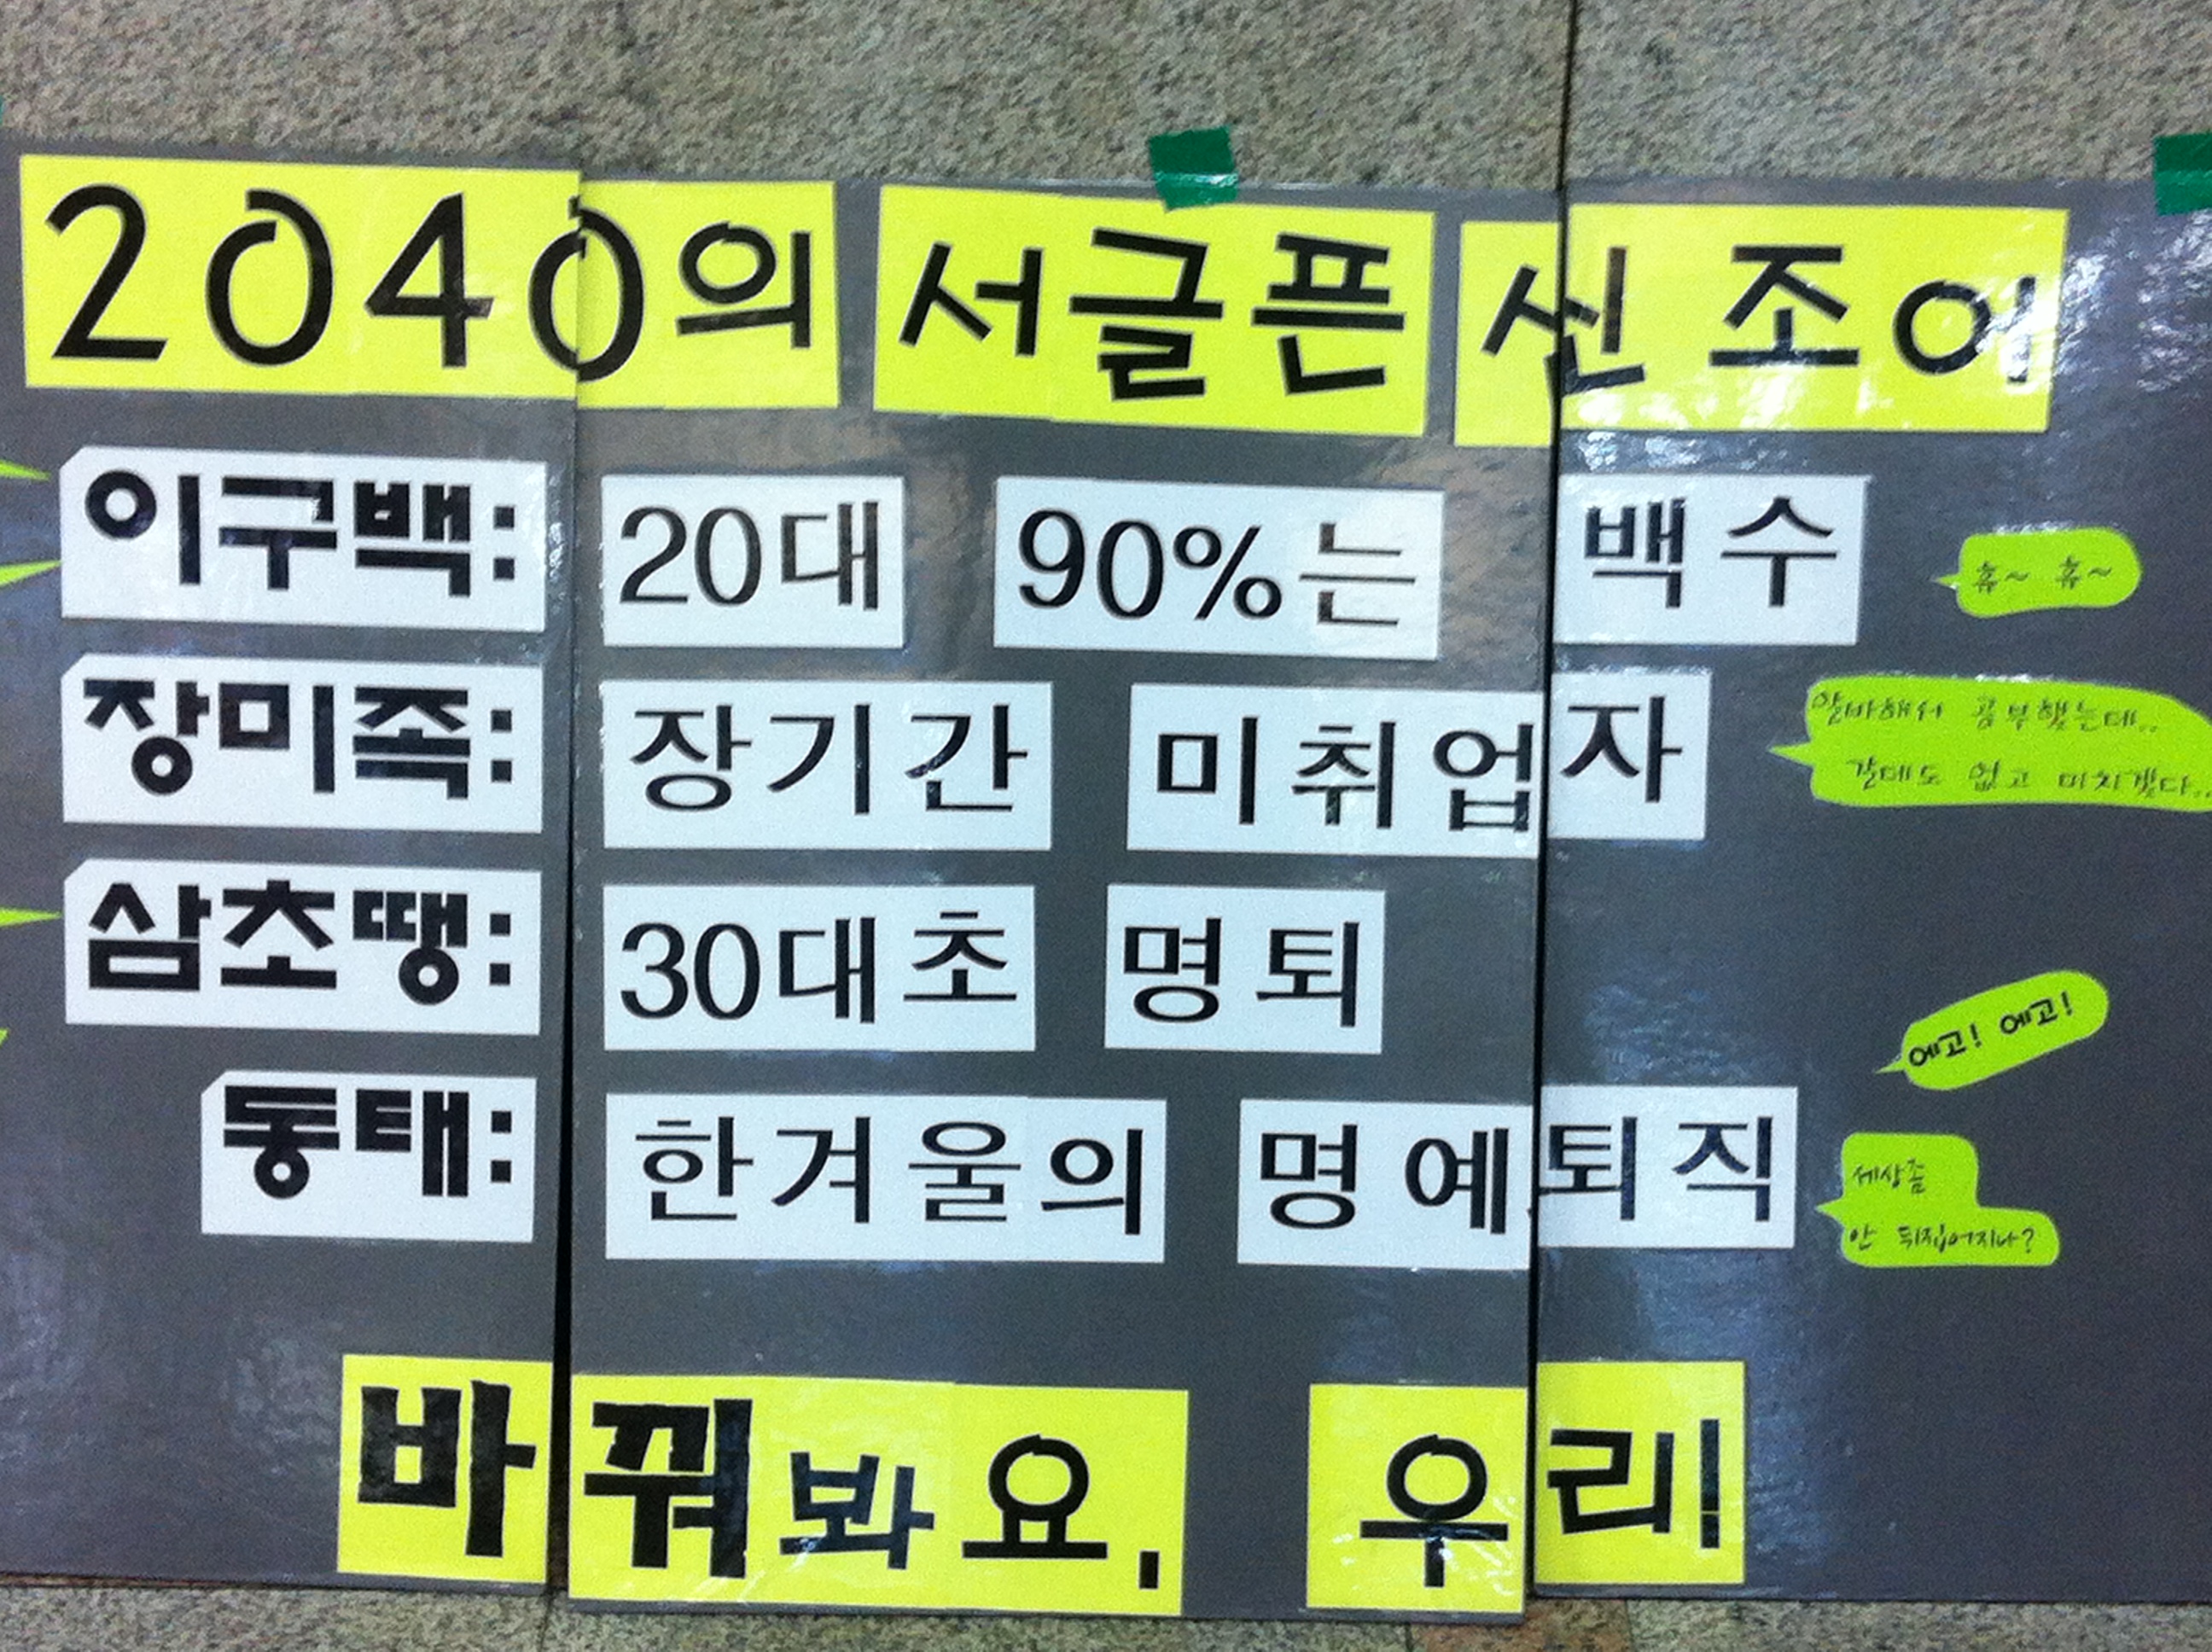 2040의 서글픈 신조어
이구백: 20대 90%는 백수
휴~ 휴~
장미족: 장기간 미취업자
알바해서 공부했는데..
갈데도 없고 미치겠다..
삼초땡: 30대초 명퇴
에고! 에고!
동태: 한겨울의 명예퇴직
세상좀
안 뒤집어지나?
바꿔봐요. 우리